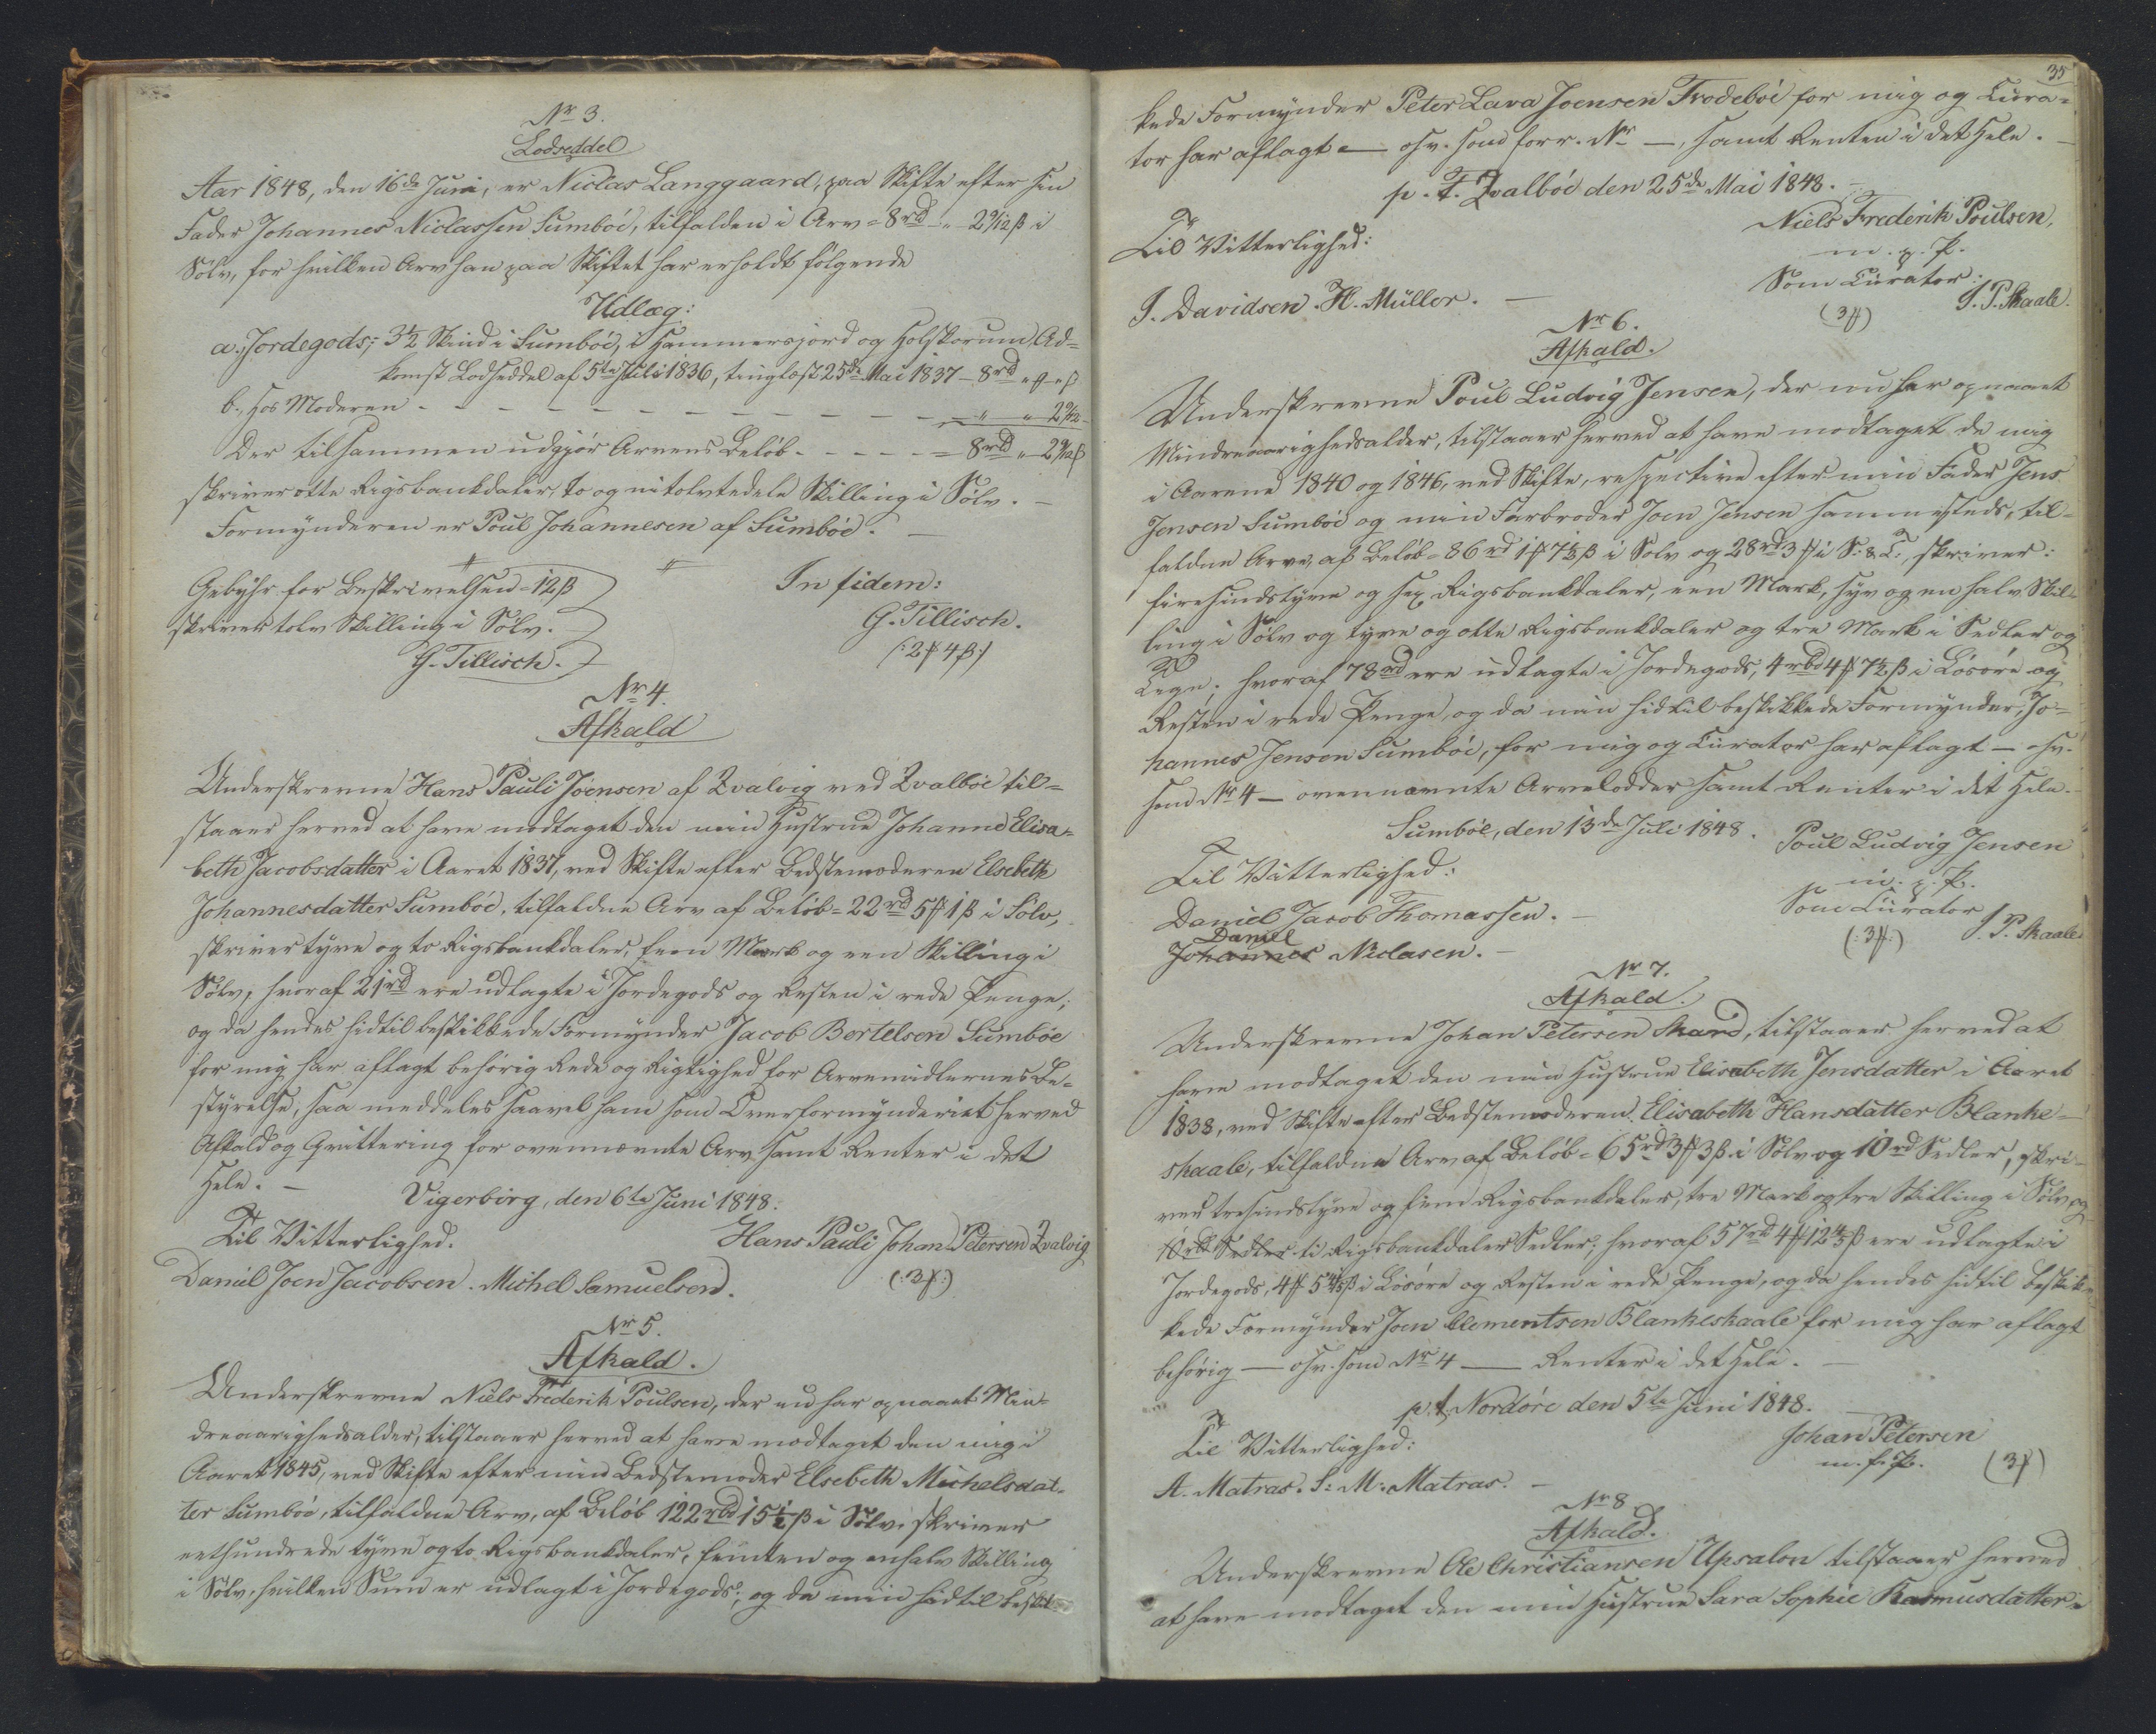 Nr 3.
Lodseddel
Aar 1848, den 16de Juni, er Niclas Langgaard, paa Skifte efter sin
Fader Johannes Niclassen Sumböe, tilfalden i Arv = 8rd „ 2 9/12 ß i
Sølv, for hvilken Arv han paa Skiftet har erholdt følgende
Udlæg:
a., Jordegods; 3 1/2 Skind i Sumböe, i Hammersjord og Holskorum Ad=
komst Lodseddel af 5te Juli 1836, tinglæst 25de Mai 1837 – 8rd „ ₰ „ ß
b., hos Moderen - - - - - - - - - - - - „ „ 2 9/12 -
Der tilsammen udgjör Arvens Belöb - - - - - = 8rd „ 2 9/12 ß
skriver otte Rigsbankdaler, to og nitolvtedele Skilling i Sølv. –
Formynderen er Poul Johannesen af Sumböe. –
Gebyhr for Beskrivelsen = 12 ß
skriver tolv Skilling i Sølv.
G. Tillisch.
In fidem:
G. Tillisch.
(: 2 ₰ 4 ß :)
Nr 4.
Afkald
Underskrevne Hans Pauli Joensen af Qvalvig ved Qvalböe til=
staaer herved at have modtaget den min Hustrue Johanne Elisa=
beth Jacobsdatter i Aaret 1837, ved Skifte efter Bedstemoderen Elsebeth
Johannesdatter Sumböe, tilfaldne Arv af Belöb = 22rd 5 ₰ 1 ß i Sølv,
skriver tyve og to Rigsbankdaler, fem Mark og een Skilling i
Sølv, hvoraf 21rd ere udlagte i Jordegods og Resten i rede Penge;
og da hendes hidtil beskikkede Formynder Jacob Bertelsen Sumböe
for mig har aflagt behörig Rede og Rigtighed for Arvemidlernes Be=
styrelse, saa meddeles saavel ham som Overformynderiet herved
Afkald og Qvittering for ovennævnte Arv samt Renter i det
Hele. –
Vigerbirg, den 6te Juni 1848.
Til Vitterlighed.
Hans Pauli Johan Petersen Qvalvig
Daniel Joen Jacobsen. Michel Samuelsen.
(: 3 ₰ :)
Nr 5.
Afkald.
Underskrevne Niels Frederik Poulsen, der nu har opnaaet Min=
dreaarighedsalder, tilstaaer herved at have modtaget den mig i
Aaret 1845, ved Skifte efter min Bedstemoder Elsebeth Michelsdat=
ter Sumböe, tilfaldne Arv, af Belöb 122rbd 15 1/2 ß i Sølv, skriver
eethundrede tyve og to Rigsbankdaler, femten og en halv Skilling
i Sølv, hvilken Sum er udlagt i Jordegods; og da min hidtil beskik=
35
kede Formynder Peter Lava Joensen Frodeböe for mig og Cura=
tor har aflagt – osv. som forr. Nr –, samt Renten i det Hele. –
p. t. Qvalböe den 25de Mai 1848.
Til Vitterlighed:
Niels Frederik Poulsen,
m. p. P.
Som Curator:
J. Davidsen. H. Müller. –
(3 ₰)
J. P. Skaale.
Nr 6.
Afkald.
Underskrevne Poul Ludvig Jensen, der nu har opnaaet
Mindreaarighedsalder, tilstaaer herved at have modtaget de mig
i Aarene 1840 og 1846, ved Skifte, respective efter min Fader Jens
Jensen Sumböe og min Farbroder Joen Jensen sammesteds, til=
faldne Arve, af Belöb = 86rd 1 ₰ 7 1/2 ß i Sølv og 28rd 3 ₰ i S: & T:, skriver:
firesindstyve og sex Rigsbankdaler, een Mark, syv og en halv Skil=
ling i Sølv og tyve og otte Rigsbankdaler og tre Mark i Sedler og
Tegn. hvoraf 78rd ere udlagte i Jordegods, 4rbd 4 ₰ 7 1/2 ß i Lösöre og
Resten i rede Penge, og da min hidtil beskikkede Formynder, Jo=
hannes Jensen Sumböe, for mig og Curator har aflagt – osv.
som Nr 4 – ovennævnte Arvelodder samt Renter i det Hele. –
Sumböe, den 13de Juli 1848.
Poul Ludvig Jensen
Til Vitterlighed:
m. p. P.
Som Curator
Daniel Jacob Thomassen. –
J. P. Skaale
Daniel
Johannes Niclasen. –
(: 3 ₰ :)
Nr 7.
Afkald.
Underskrevne Johan Petersen Skard, tilstaaer herved at
have modtaget den min Hustrue Elisabeth Jensdatter i Aaret
1838, ved Skifte efter Bedstemoderen Elisabeth Hansdatter Blanke=
skaale, tilfaldne Arv af Belöb = 65rd 3 ₰ 3 ß i Sølv og 10rd Sedler, skri=
ver tresindstyve og fem Rigsbankdaler, tre Mark og tre Skilling i Sølv og
10rd Sedler ti Rigsbankdaler Sedler; hvoraf 57rd 4 ₰ 12 4/5 ß ere udlagte i
Jordegods, 4 ₰ 5 4/5 ß i Lösöre og Resten i rede Penge, og da hendes hidtil beskik=
kede Formynder Joen Clementsen Blankeskaale for mig har aflagt
behörig – osv. som Nr 4 – Renter i det Hele. –
p. t. Nordöre den 5te Juni 1848.
Til Vitterlighed:
Johan Petersen
m. f. P.
(3 ₰)
A. Matras. S: M: Matras. –
Nr 8
Afkald.
Underskrevne Ole Christiansen Upsalon tilstaaer herved
at have modtaget den min Hustrue Sara Sophie Rasmusdatter=